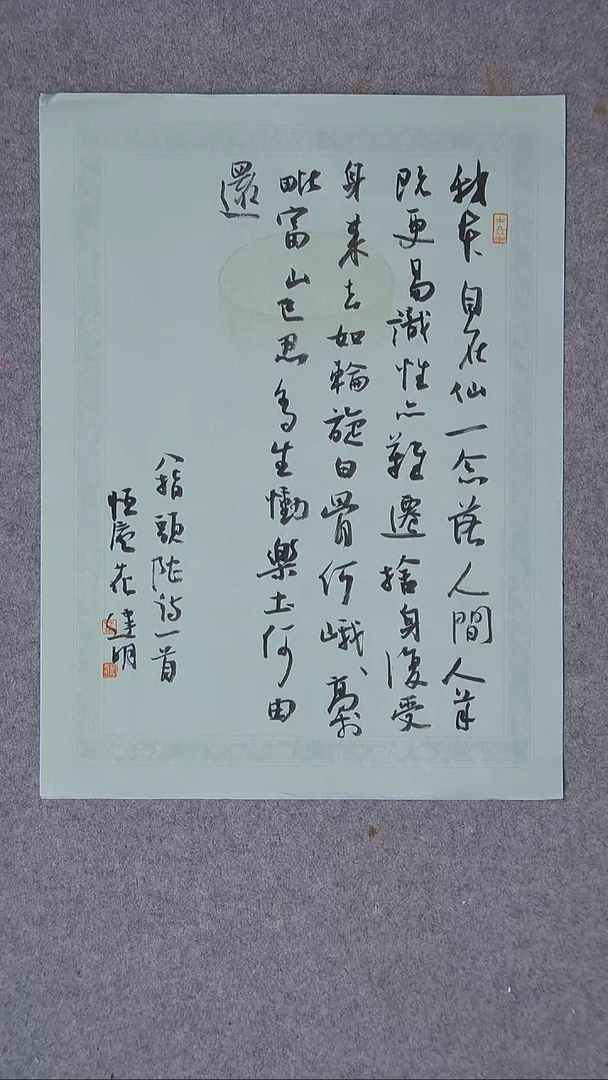 我本自在仙一念落人間人羊
既更易識性亦難遷捨身復受
身来去如輪旋白骨何峨、高於
毗富山已思多生慟樂土何由
還
八指頭陀詩一首
恒庵花建明